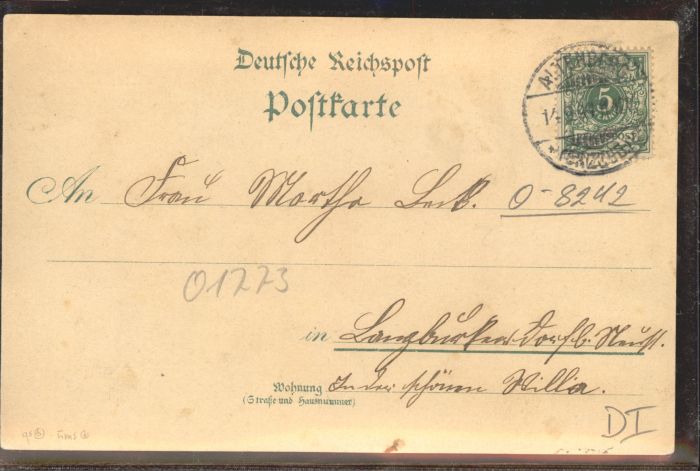 Deutsche Reichspost
Postkarte
ALTENBERG
5
REICHSPOST
(ERZGEB.)
An Frau Martha Leck. O-8242
01273
in Langburkersdorf b. Neust.
Wohnung In der schönen Villa.
(Straße und Hausnummer)
DI